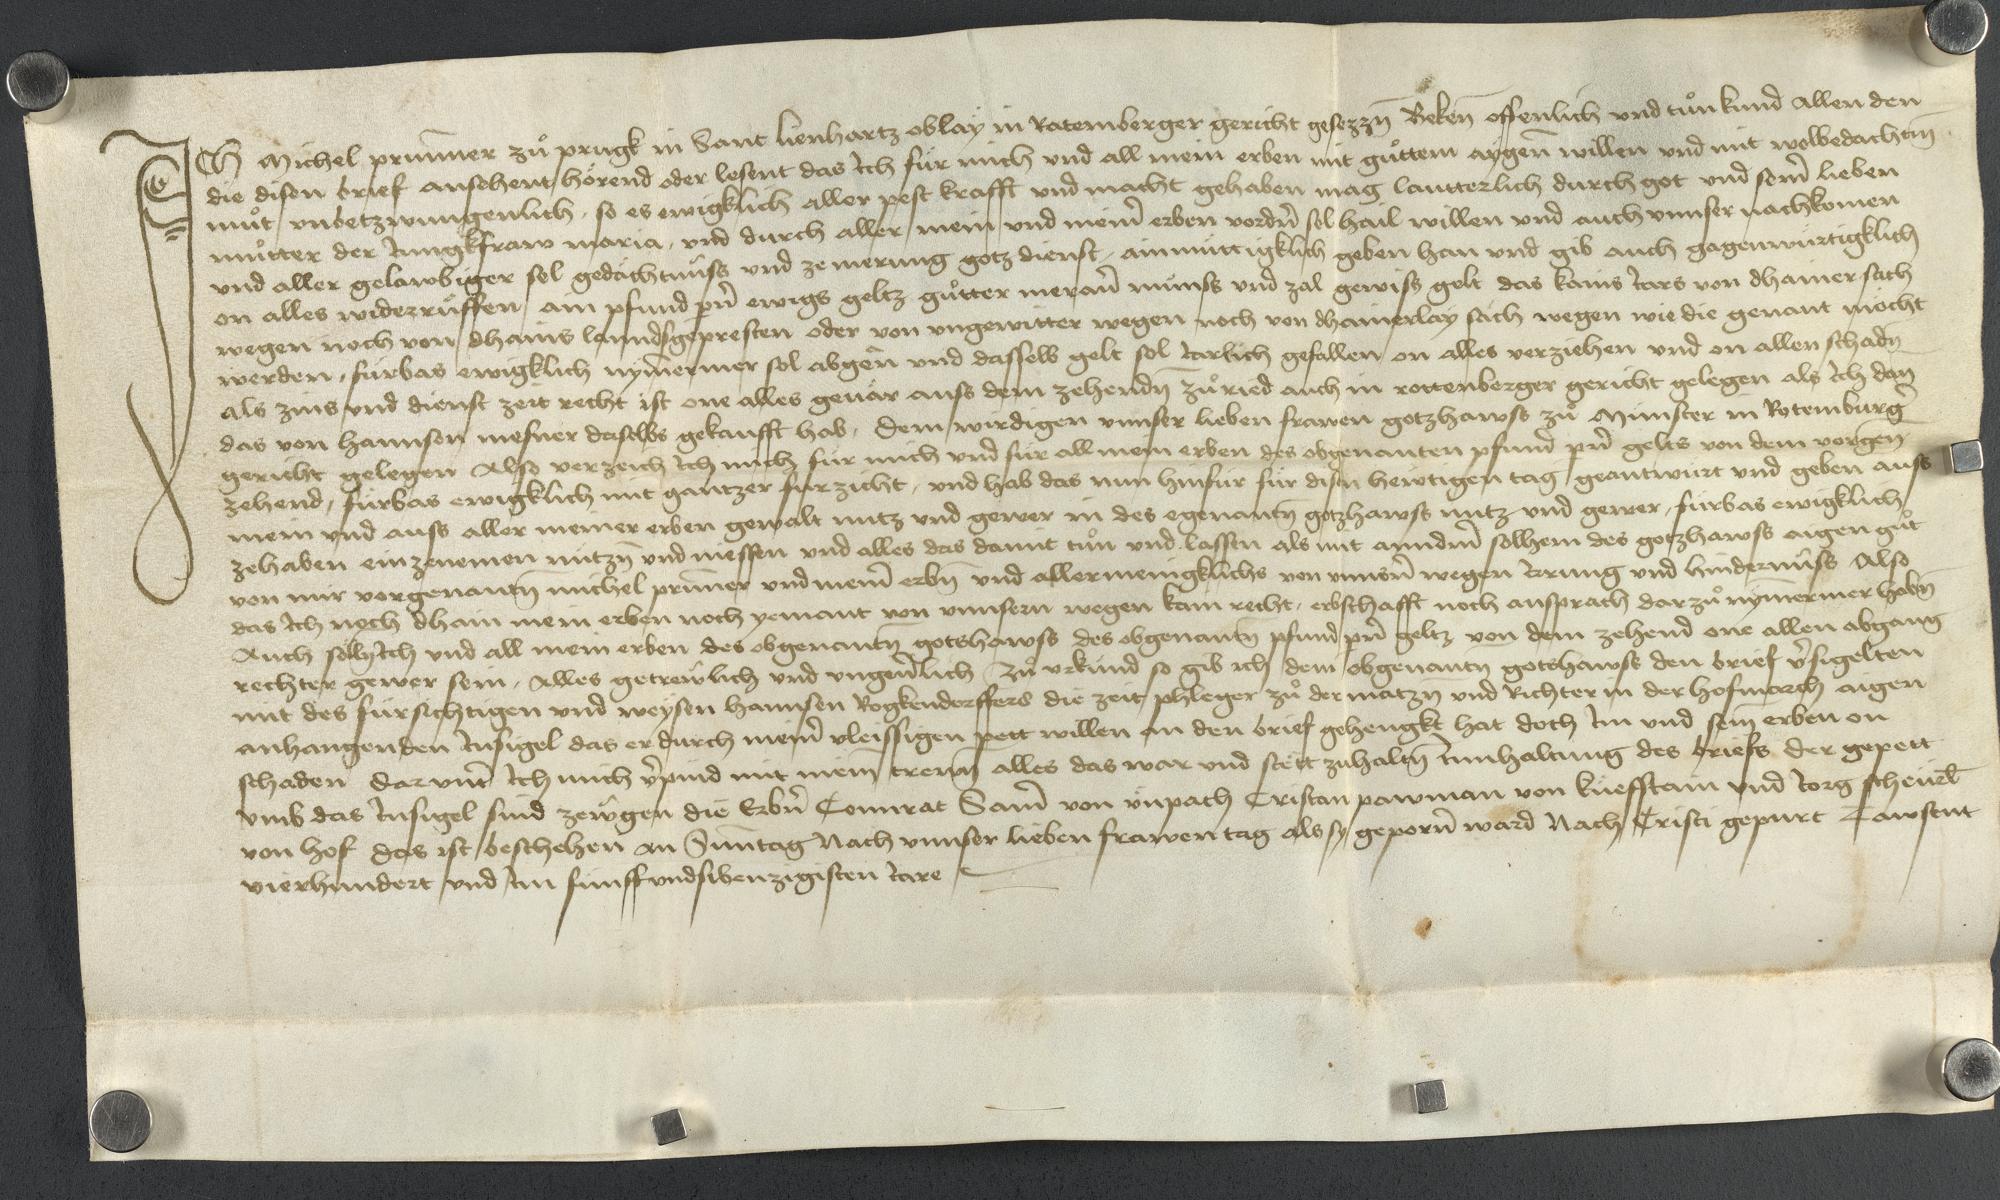 ICH Michel prunner zů prugk in Sant lienhartz oblay in Ratemberger gericht gesezzn̄ Beken̄ offenlich vnd tůn kund allen den
die disen brief ansehent hörend oder lesent das Ich für mich vnd all mein erben mit gůttem aÿgen̄ willen vnd mit wolbedachtm̄
můt vnbetzwungenlich, so es ewigklich aller pest krafft vnd macht gehaben mag lautterlich durch got vnd sein̄ lieben
můtter der Jungkfraw maria, vnd durch aller mein vnd mein̄ erben vordn̄ sel hail willen vnd auch vnnser nachkomen
vnd aller gelawbiger sel gedächtnůss vnd ze merung gotz dienst, ainmuttigklich geben han vnd gib auch gagenwürtigklich
on alles widerrůffen, ain pfund pn̄ ewigs geltz gůtter meran̄ můnss vnd zal gewiss gelt das kains Jars von dhainer sach
wegen noch von dhains lanndsgepresten oder von vngewitter wegen noch von dhainerlay sach wegen wie die genant möcht
werden, fürbas ewigklich nÿm̄ermer sol abgen̄ vnd dasselb gelt sol Järlich gefallen on alles verziehen vnd on allen schadn̄
als zins vnd dienst zeit recht ist one alles geuär auss dem zehendn̄ zů ried auch in rottenberger gericht gelegen als Ich dan
das von hannsen mesner daselbs gekaufft hab, dem wirdigen vnnser lieben frawen gotzhawss zů Münster in Rotemburḡ
gericht gelegen Also verzeich Ich mich für mich vnd für all mein erben des obgenanten pfund pn̄ gelts von dem vorgen̄
zehend, fürbas ewigklich mit gantzer fürzicht, vnd hab das nun hinfür für disn̄ hewtigen tag geantwurt vnd geben auss
mein vnd auss aller meiner erben gewalt nutz vnd gewer in des egenantn̄ gotzhawss nutz vnd gewer, fürbas ewigklich
zehaben einzenemen nutzn̄ vnd niessen vnd alles das damit tůn vnd lassen als mit anndrm̄ solhem des gotzhawss aigen gůt
von mir vorgenantn̄ michel prunner vnd mein̄ erbn̄ vnd allermenigklichs von vnnsrn̄ wegen Irrung vnd hindernůss Also
das Ich noch dhain mein erben noch yemant von vnnsern wegen kain recht, erbschafft noch ansprach darzů nÿm̄ermer habn̄
Auch sölln̄ Ich vnd all mein erben des obgenantn̄ gotshawss des obgenantn̄ pfund pn̄ geltz von dem zehend one allen abgang
rechter gewer sein, Alles getrewlich vnd vngeu̅lich Zů vrkund so gib ich dem obgenantn̄ gotshawss den brief v̄sigelten
mit des fürsichtigen vnd weÿsen hannsen Rogkendorffers die zeit phleger zů der matzn̄ vnd Richter in der hofmarch aigen
anhangenden Insigel das er durch mein̄ vleissigen pett willen an den brief gehengkt hat doch Im vnd sein̄ erben on
schaden dar vnt̄ Ich mich v̄pind mit mein̄ trewn̄ alles das war vnd stett zuhaltn̄ Innhaltung des briefs der gepett
vmb das Insigel sind zewgen die Erbn̄ Connrat Sam̄ von vnpach Cristan pawman von küeffstain vnd Jorg scheürl
von hof das ist beschehen an Sunntag Nach vnnser lieben frawen tag als sy geporn̄ ward Nach Cristi gepurt Tawsent
vierhundert vnd Im fünffvndsibenzigisten Jare